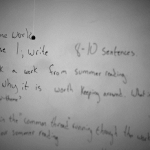 me work.
e 1, write 8-10 sentences
k a work from summer reading
why it is worth keeping around. What is
the "common thread" running through the
summer reading